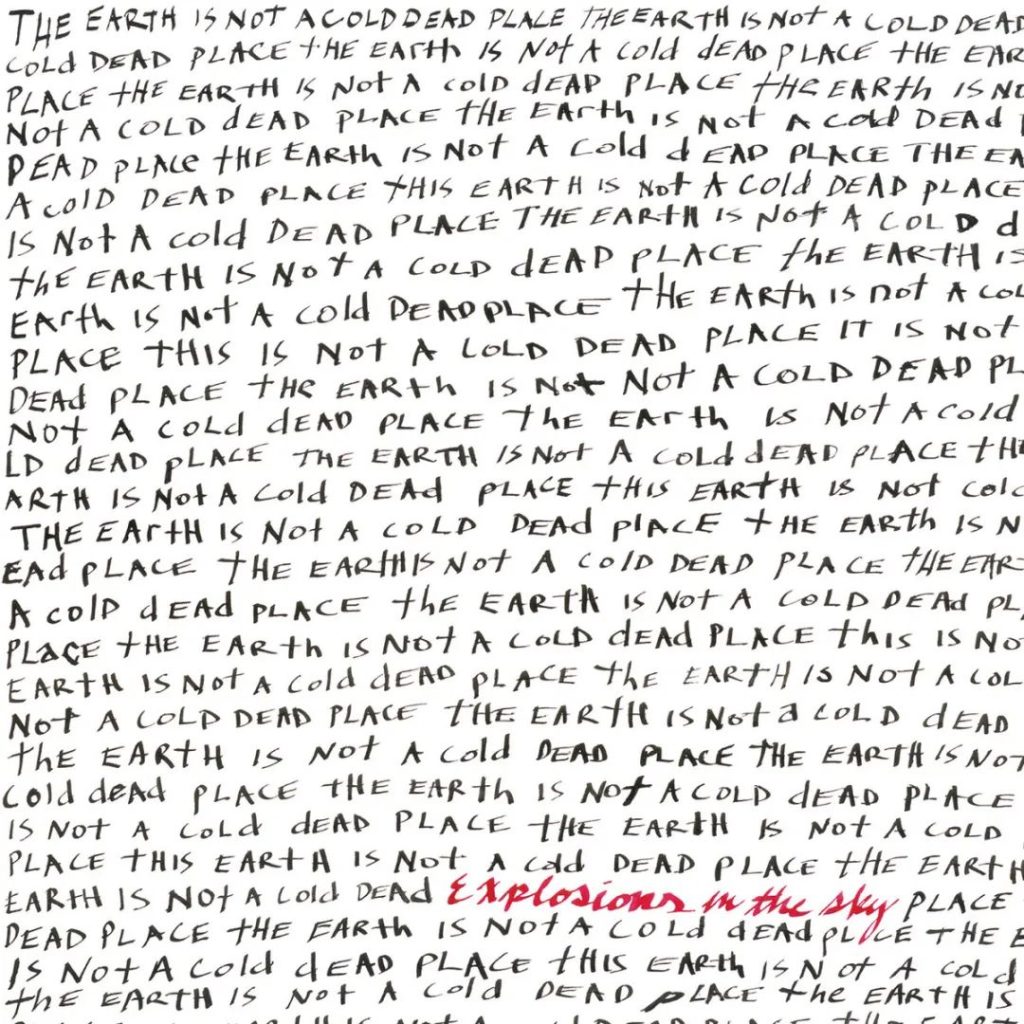 THE EARTH IS NOT A COLD DEAD PLACE THE EARTH IS NOT A COLD DEAD
Cold DEAD PLACE tHE EARth IS Not A Cold dEAD PLACE tHE EAR
PLACE tHE EARTH IS Not A Cold dEAD PLACE tHE EARth IS NO
Not A COLD dEAD PLACE tHE EArth IS Not A Cold DEAd
DEAD PLACe tHE EARth IS Not A Cold d EAD PLACE THE EA
A ColD DEAD PLACE tHIS EARTH IS Not A Cold DEAD pLACE
IS Not A Cold DEAD PLACE THE EARtH IS Not A COLD d
thE EARTH IS NoT A COLD dEAD PLACE thE EARTH IS
EArth IS Not A Cold DEAD PLACE tHE EARth IS not A COL
PLACE THIS IS Not A COLD DEAD PLACE IT IS Not
DEAd PLACE tHE EARth IS Not Not A COLD DEAD PL
NOt A COLd dEAD PLACE The EArth IS Not A Cold
LD dEAD pLACE THE EARTH IS Not A COLd dEAD PLACE tH
ARTH IS Not A Cold DEAd PLACE tHIS EARtH IS Not Cold
THE EArtH IS Not A COLD DEAd PlACE tHE EARth IS N
EAd PLACE tHE EARtH IS Not A Cold DEAD PLACE tHE EAR
A ColD dEAd PLACE thE EARTH IS Not A COLD DEAd PL
PLACE tHE EARth IS Not A COLD dEAd PLACE this IS NO
EARtH IS Not A Cold dEAD PLACE the EARTH IS Not A COL
Not A COLD DEAD PLACE tHE EARtH IS Not a COLD dEAD
thE EARTH IS Not A Cold DEAD PLACE THE EARTH IS NOT
Cold deAd PLACE tHE EARth IS Not A COLD dEAD PLACE
IS Not A Cold dEAD PLACE tHE EARTH IS Not A COLD
PLACE tHIS EARtH IS Not A Cold DEAD PLACE tHE EARTH
EARTH IS Not A Cold DEAD Explosions in the sky PLACE
DEAD PLACE tHE EARth IS Not A COLd dEAd pLACE THE E
IS Not A Cold dEAD PLACE tHIS EARth IS Not A COLd
thE EARTH IS Not A Cold DEAD pLACE the EARTH IS